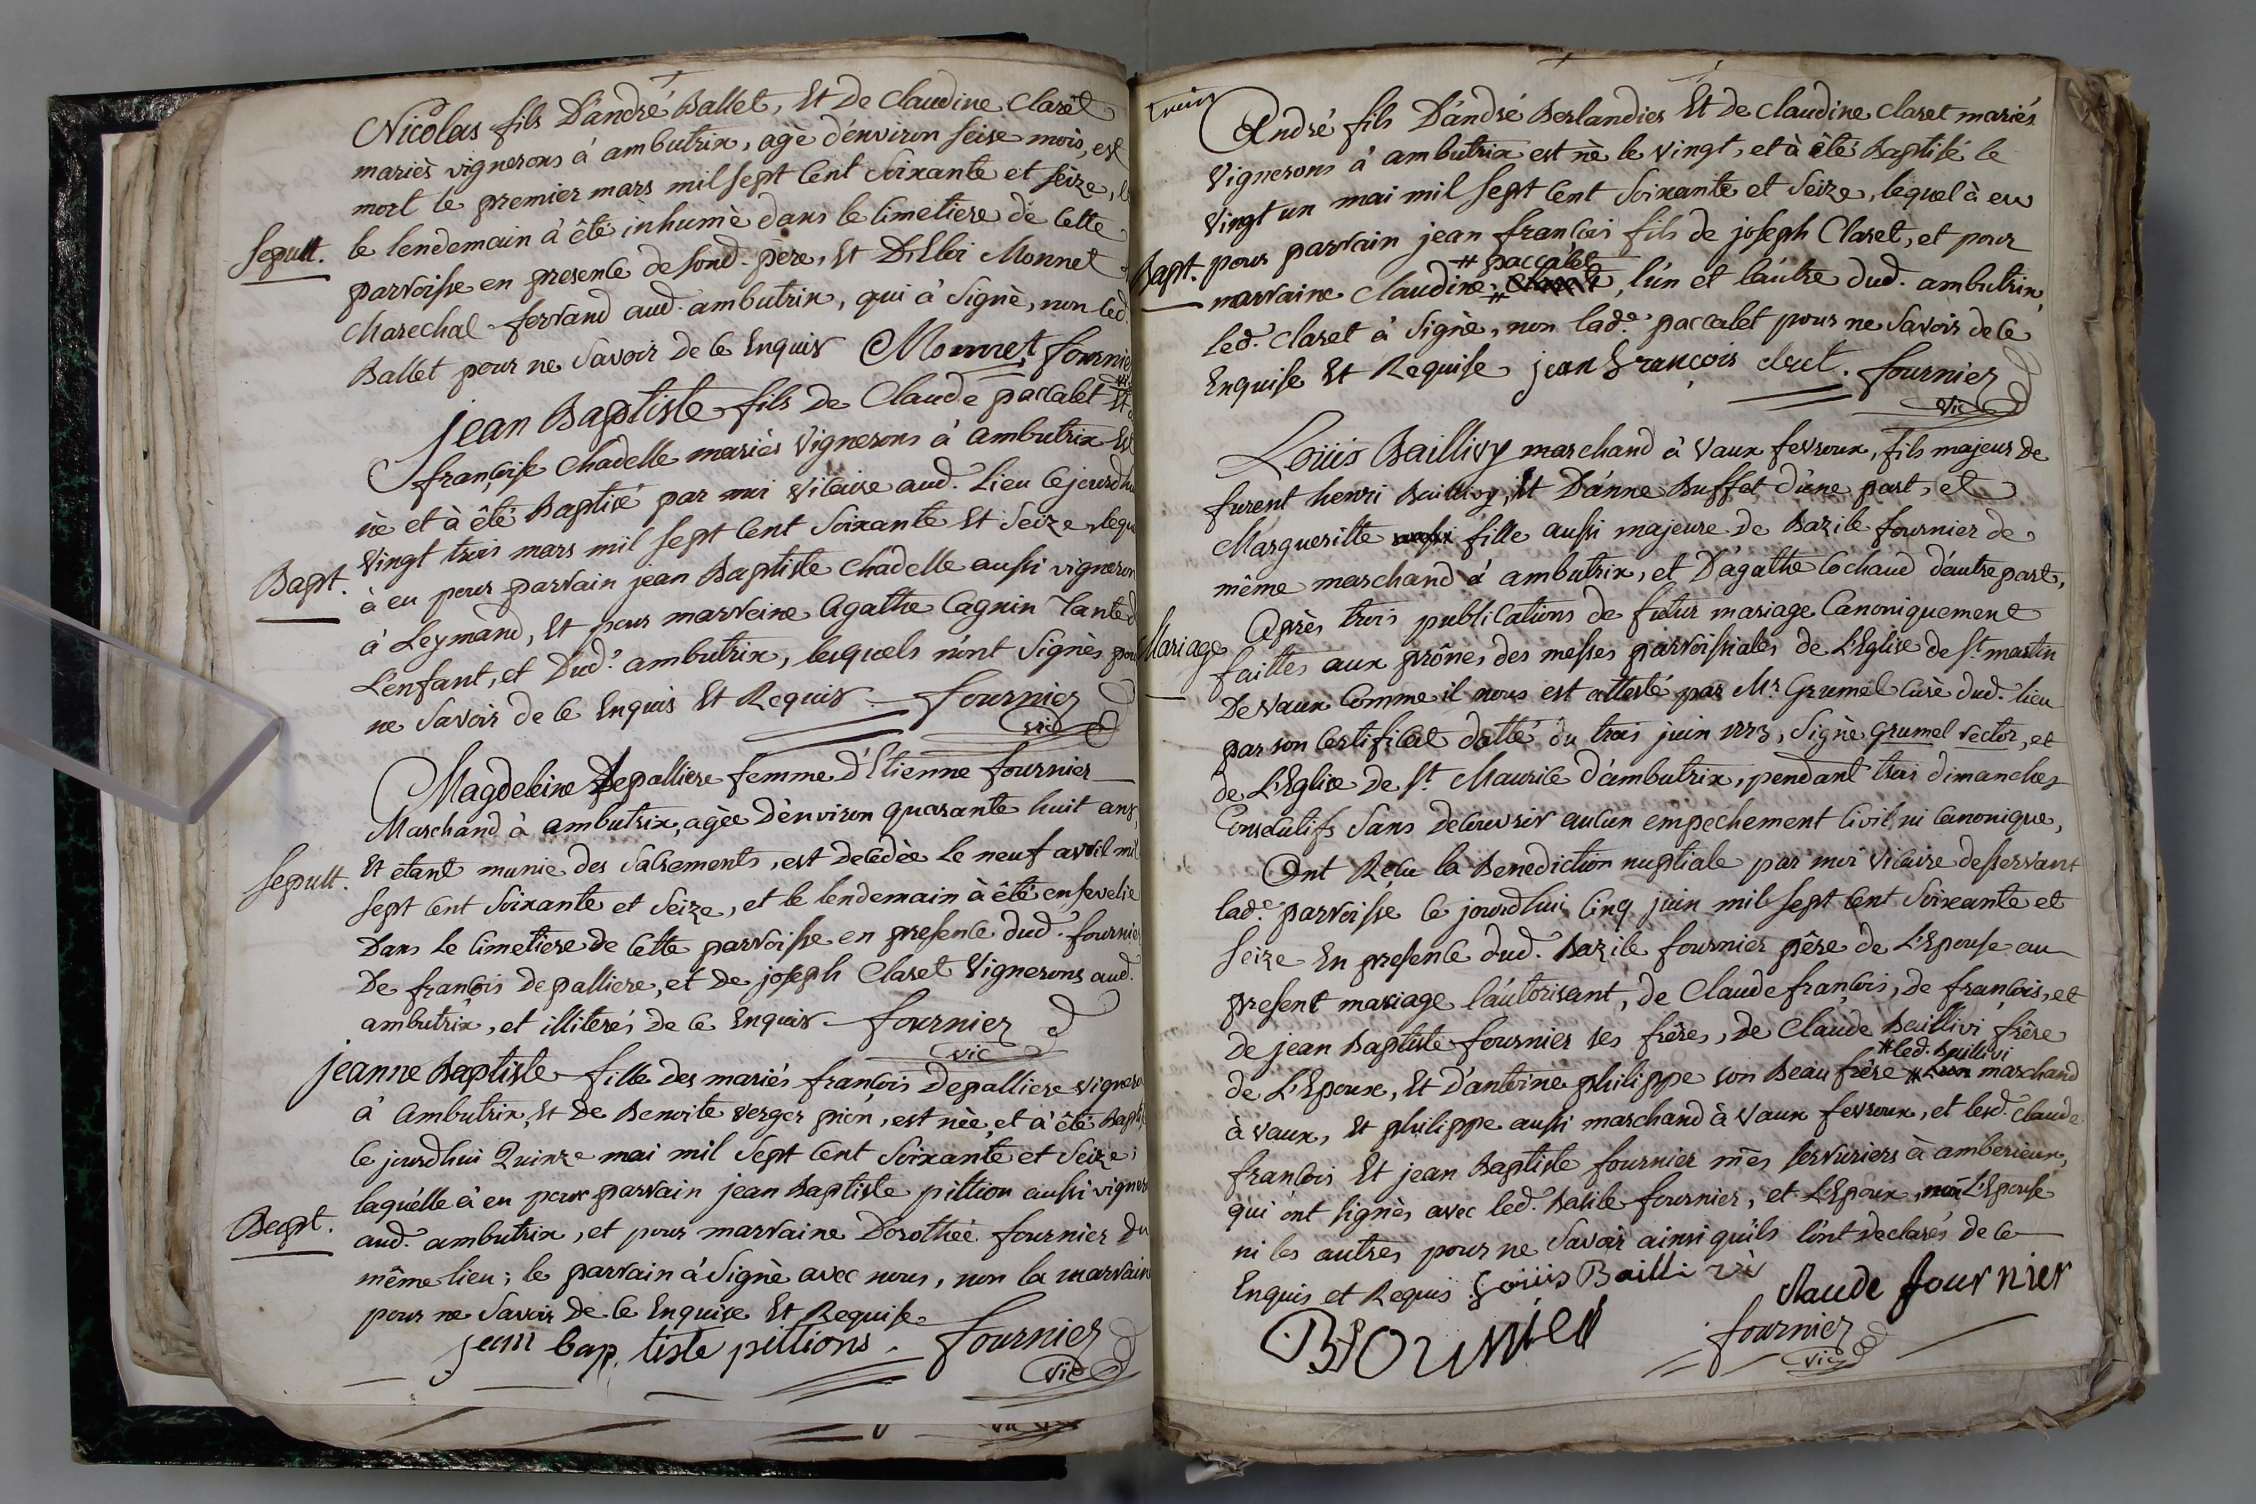 Nicolas fils D'andré Ballet, Et De Claudine Claret
mariès vignerons à ambutrix, agé d'environ seise mois, est
mort le premier mars mil sept Cent Soixante et seize,
Sepult.
le lendemain à êté inhumè dans le Cimetiere de Cette
parroisse en presence de sond. père, Et D'Elloi Monnet
Marechal ferrand aud. ambutrix, qui à Signè, non led.
Ballet pour ne Savoir De Ce Enquis Monnet fournier
jean Baptiste fils De Claude paccalet Et
françoise Chadelle mariès Vignerons à ambutrix Est
nè et à êté Baptisé par moi Vicaire aud. Lieu Cejourd'hui
Vingt trois mars mil sept Cent Soixante Et Seize, lequel
Bapt.
à eu pour parrain jean Baptiste Chadelle aussi vigneron
à Leymand, Et pour marreine Agathe Cagnin Tante d
L'enfant, et Dud. ambutrix, lesquels n'ont Signès pour
ne Savoir de Ce Enquis Et Requis fournier
vic
Magdeleine Depalliere femme d'Etienne fournier
Marchand à ambutrix, agèe D'environ quarante huit ans,
Sepult.
Et étant munie des Sacrements, est decedèe Le neuf avril mil
Sept Cent Soixante et Seize, et le lendemain à êté ensevelie
Dans Le Cimetiere de Cette parroisse en presence dud. fournier
De françois Depalliere, et de joseph Claret Vignerons aud.
ambutrix, et illiterés de Ce Enquis fournier
vic
jeanne Baptiste fille des mariés françois Depalliere vigneron
à Ambutrix, Et de Benoite verger pion, est nèe, et à êté Baptisée
Ce jourd'hui Quinze mai mil Sept Cent Soixante et Seize,
laquélle à eu pour parrain jean Baptiste pittion aussi vigneron
Bapt.
aud. ambutrix, et pour marraine Dorothée fournier du
même lieu; le parrain à Signè avec nous, non la marraine
pour ne Savoir De Ce Enquise Et Requise
jean baptiste pittions. fournier
vic
André fils D'andré Berlandier Et de Claudine Claret mariés
Vignerons à ambutrix est nè le vingt, et à êté Baptisé le
Vingt un mai mil Sept Cent Soixante et Seize, lequel à eu
Bapt.
pour parrain jean françois fils de joseph Claret, et pour
# paccalet
marraine Claudine # l'un et l'autre dud. ambutrix,
Led. Claret à Signè, non lade. paccalet pour ne Savoir de Ce
Enquise Et Requise jean François claret. fournier
vic
Loüis Baillivy marchand à Vaux fevroux, fils majeur de
furent henri Baillivy, Et D'anne Buffet d'une part, et
Marguerite fille aussi majeure de Bazile fournier de
même marchand à ambutrix, et D'agathe Cochaud d'autre part,
Après trois publications de futur mariage Canoniquement
Mariage
faittes aux prônes des messes parroissiales de L'Eglise de St. martin
De Vaux Comme il nous est attesté par Mr. Grumel Curè dud. lieu
par son Certificat datté du trois juin 1773, Signè Grumel rector, et
de L'Eglise de St. Maurice d'ambutrix, pendant trois dimanches
Consecutifs Sans decouvrir aucun empechement Civil, ni Canonique,
Ont Reçu la Benediction nuptiale par moi vicaire desservant
lade. parroisse Ce jourd'hui Cinq juin mil Sept Cent Soixante et
Seize En presence dud. Bazile fournier père de L'Epouse au
present mariage l'autorisant, de Claude françois, de françois, et
de jean Baptiste fournier ses frères, de Claude Baillivi frère
# led. Baillivi
de L'Epoux, Et D'antoine philippe son Beau frère # marchand
à vaux, Et philippe aussi marchand à vaux fevroux, et lesd. Claude
françois Et jean Baptiste fournier mes. serruriers à amberieux,
qui ont signès avec led. Basile fournier, et L'Epoux, non L'Epouse
ni les autres pour ne Savoir ainsi qu'ils l'ont declarès de Ce
Enquis et Requis. Loüis Baillivi claude fournier
B fournier fournier
vic